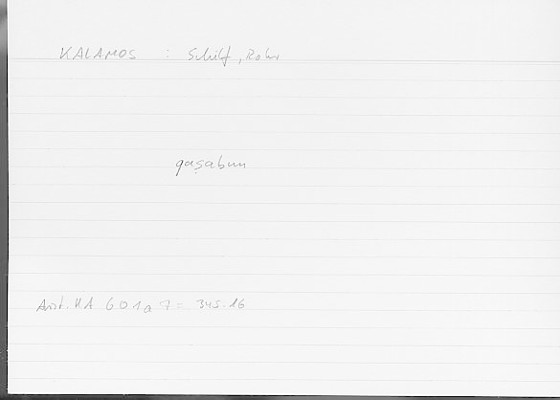 KALAMOS : Schilf, Rohr
qaṣabun
Arist. HA 601a7 = 345.16